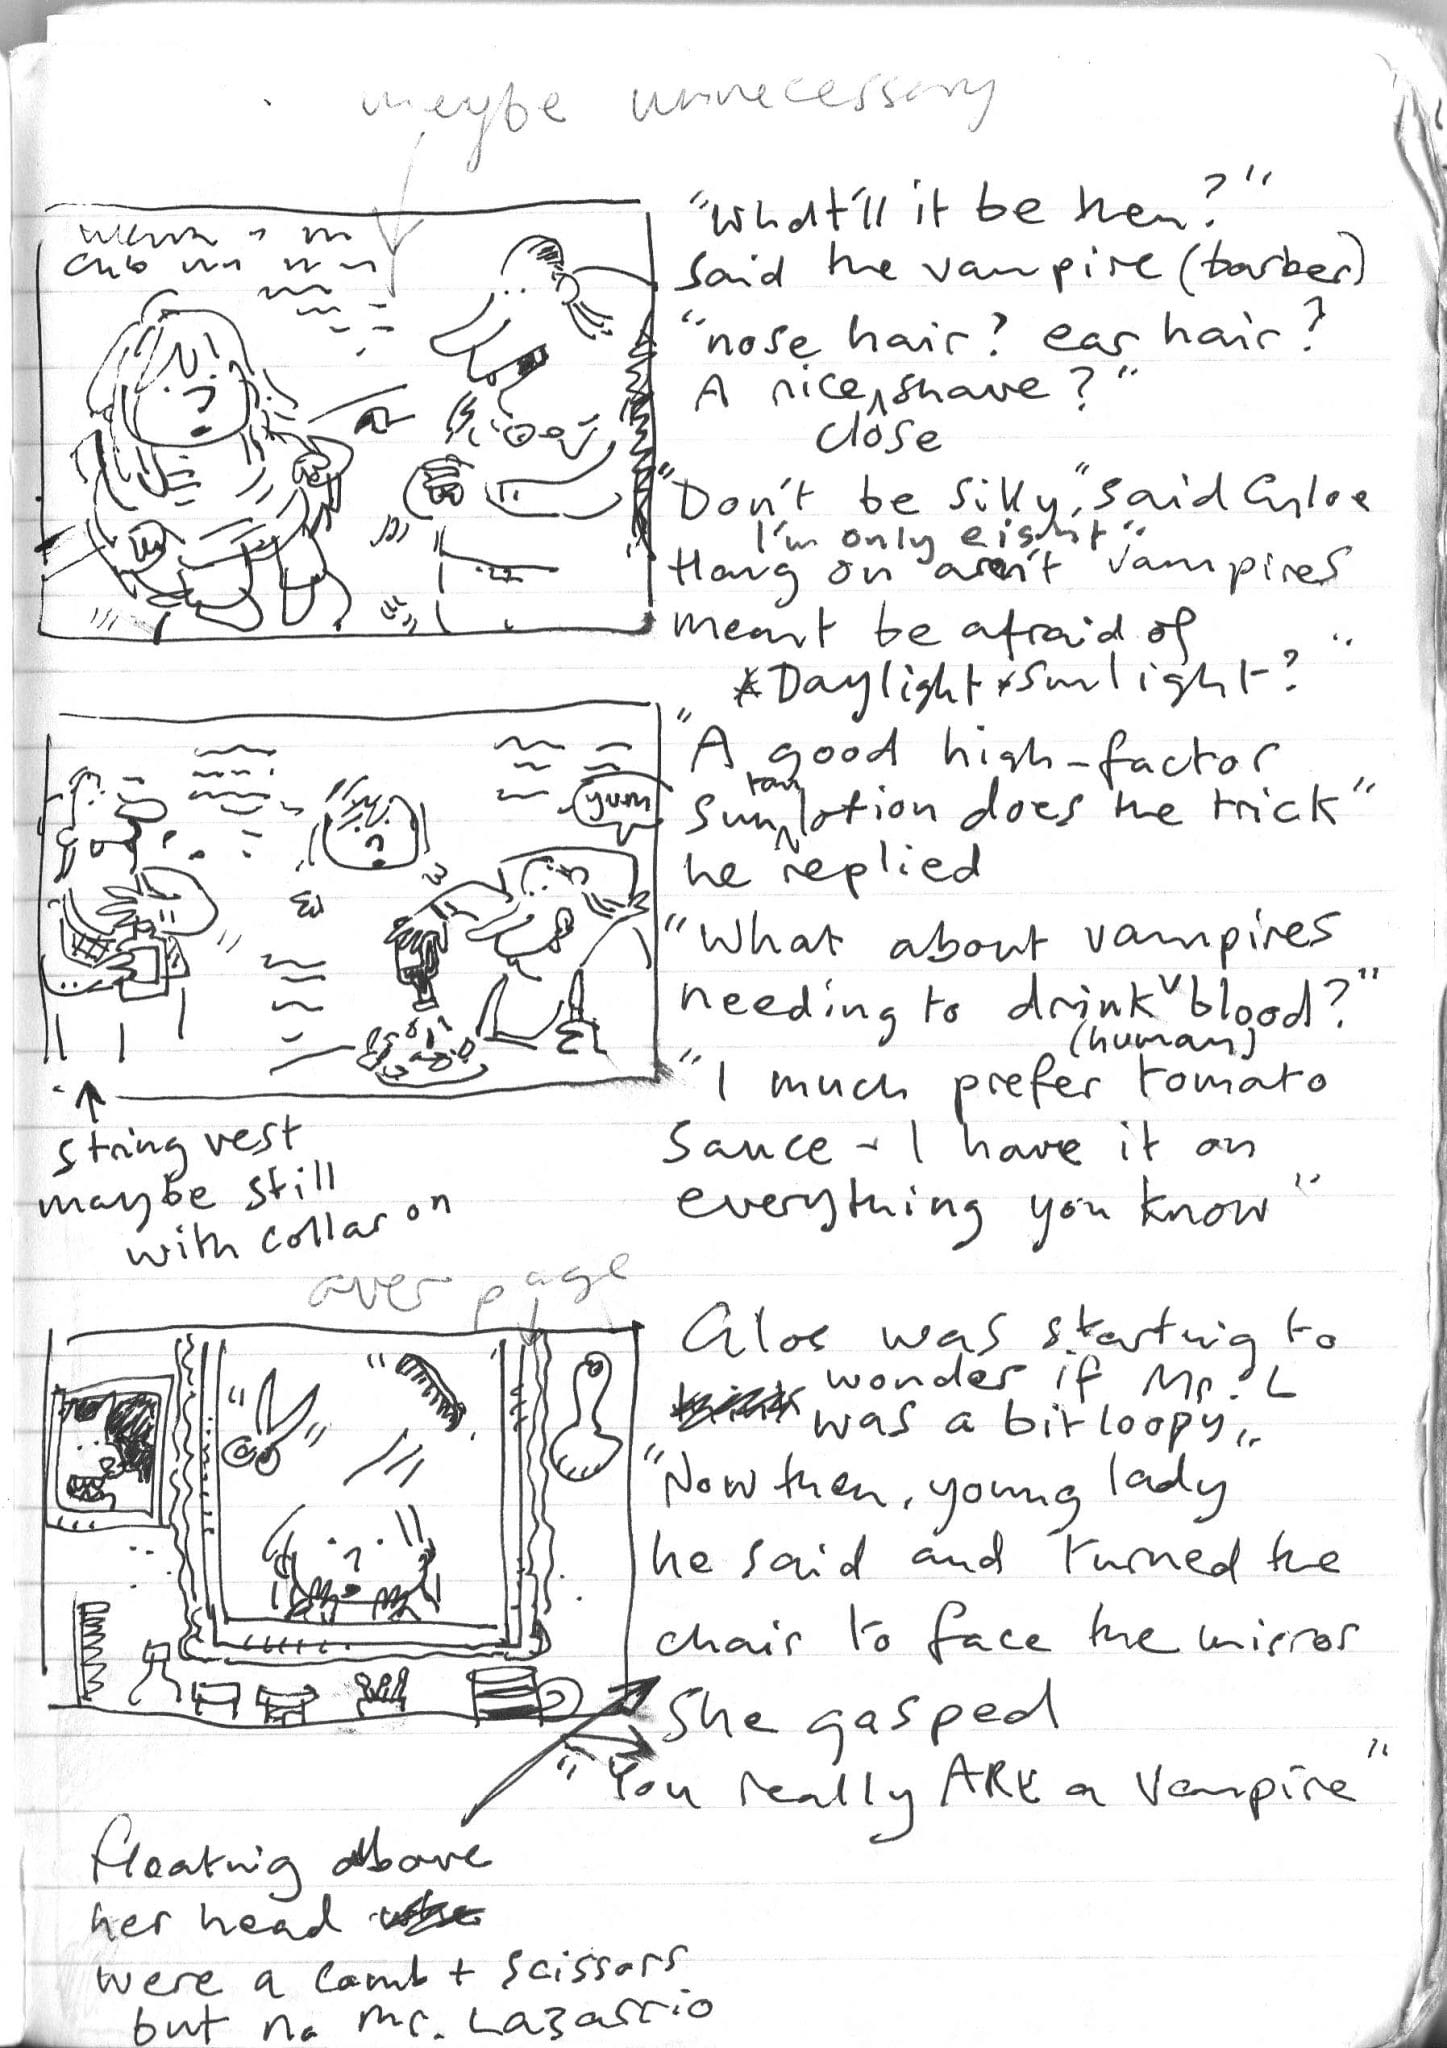 maybe unnecessary
"What'll it be then?"
said the vampire (barber)
"nose hair? ear hair?
A nice shave?"
close
"Don't be silly," said Chloe
I'm only eight"
Hang on aren't vampires
meant be afraid of
Daylight + sunlight? "
"A good high-factor
tan
sun lotion does the trick"
he replied
yum
"What about vampires
needing to drink blood?"
(human)
"I much prefer tomato
sauce - I have it on
everything you know"
string vest
maybe still
with collar on
over page
Chloe was starting to
wonder if Mr. L
was a bit loopy
"Now then, young lady
he said and turned the
chair to face the mirror
She gasped
"You really ARE a vampire"
floating above
her head
were a comb + scissors
but no Mr. Lazarrio